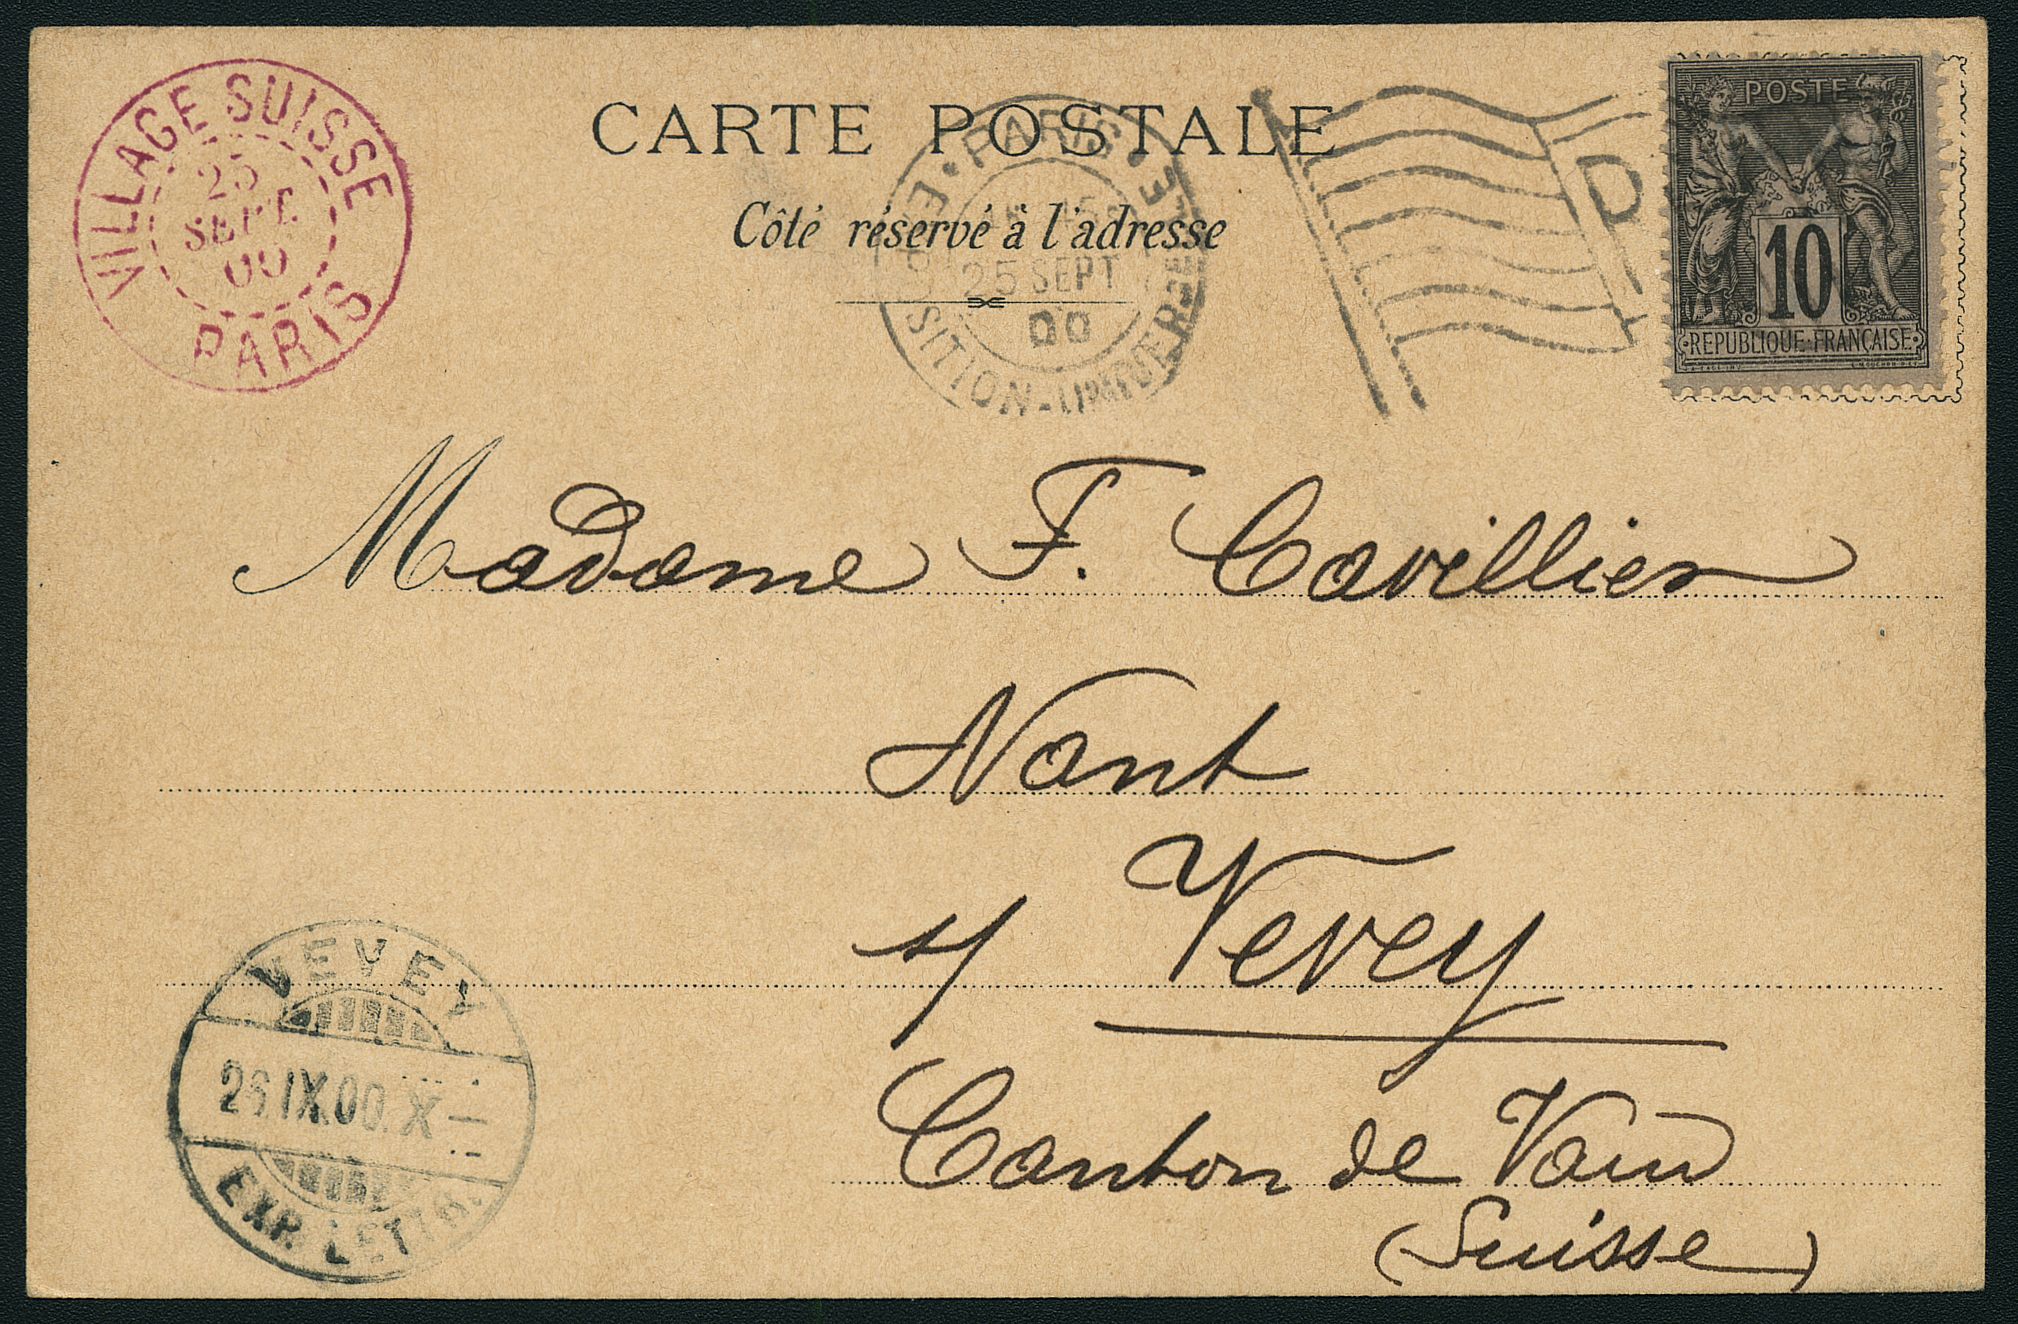 VILLAGE SUISSE
25
SEPT
00
PARIS
CARTE POSTALE
Côté réservé à l'adresse
PARIS
EXPOSITION-UNIVERSELLE
25 SEPT
00
D
POSTE
10
REPUBLIQUE FRANÇAISE
Madame F. Cavillier
Nant
s/ Vevey
Canton de Vaud
(Suisse)
VEVEY
26.IX.00.X-
EXP. LETTR.